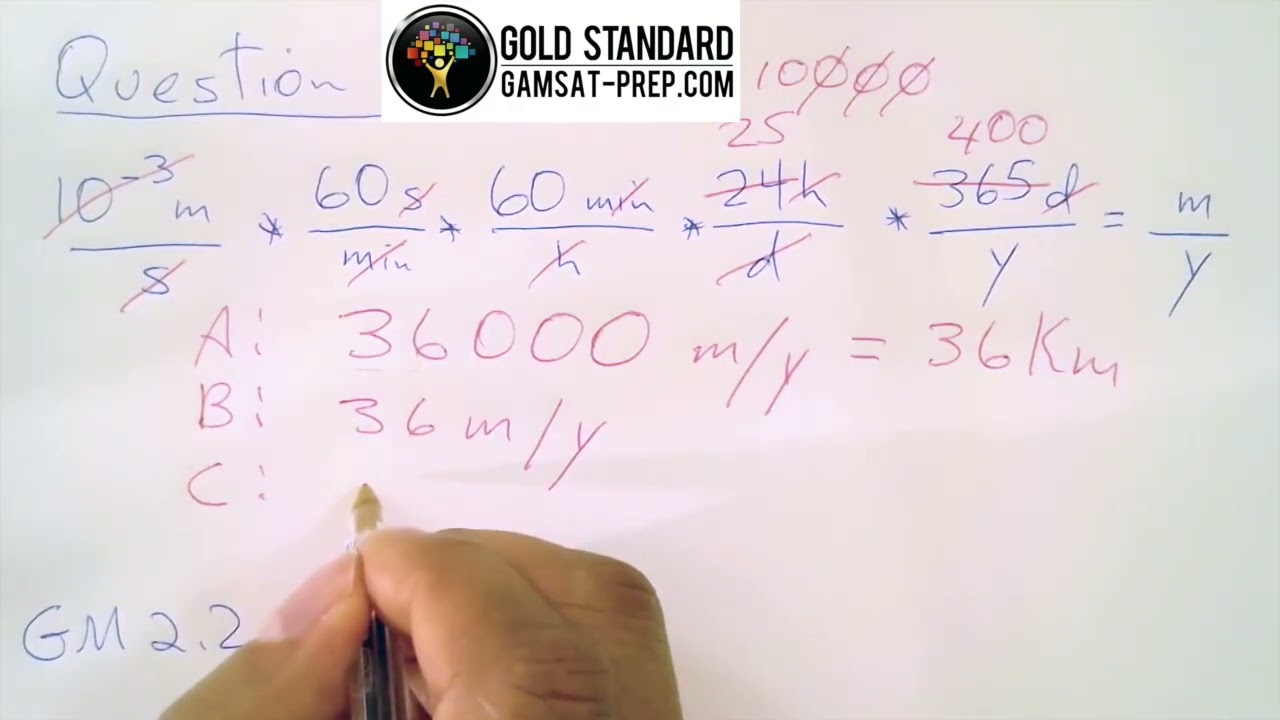 Question
GOLD STANDARD
GAMSAT-PREP.COM
10000
25 400
10⁻³ m / s * 60 s / min * 60 min / h * 24 h / d * 365 d / y = m / y
A: 36000 m/y = 36 Km
B: 36 m/y
C:
GM 2.2